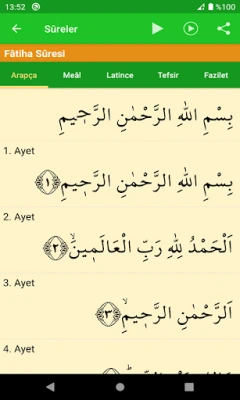 13:52
%100
Sûreler
Fâtiha Sûresi
Arapça Meâl Latince Tefsir Fazilet
بِسْمِ اللهِ الرَّحْمٰنِ الرَّح۪يمِ
1. Ayet
بِسْمِ اللهِ الرَّحْمٰنِ الرَّح۪يمِ ﴿١﴾
2. Ayet
اَلْحَمْدُ لِلهِ رَبِّ الْعَالَم۪ينَۙ ﴿٢﴾
3. Ayet
اَلرَّحْمٰنِ الرَّح۪يمِۙ ﴿٣﴾
4. Ayet